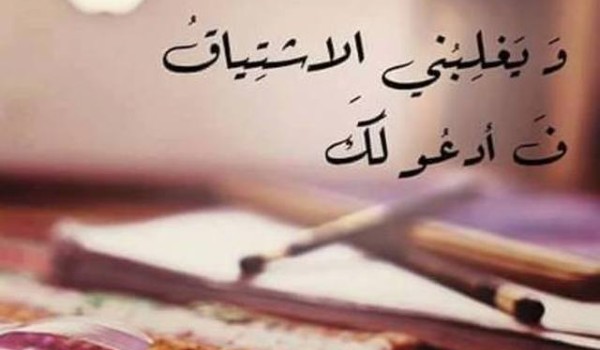 وَ يَغلِبُني الاشتِياقُ
فَ أدعُو لَكَ